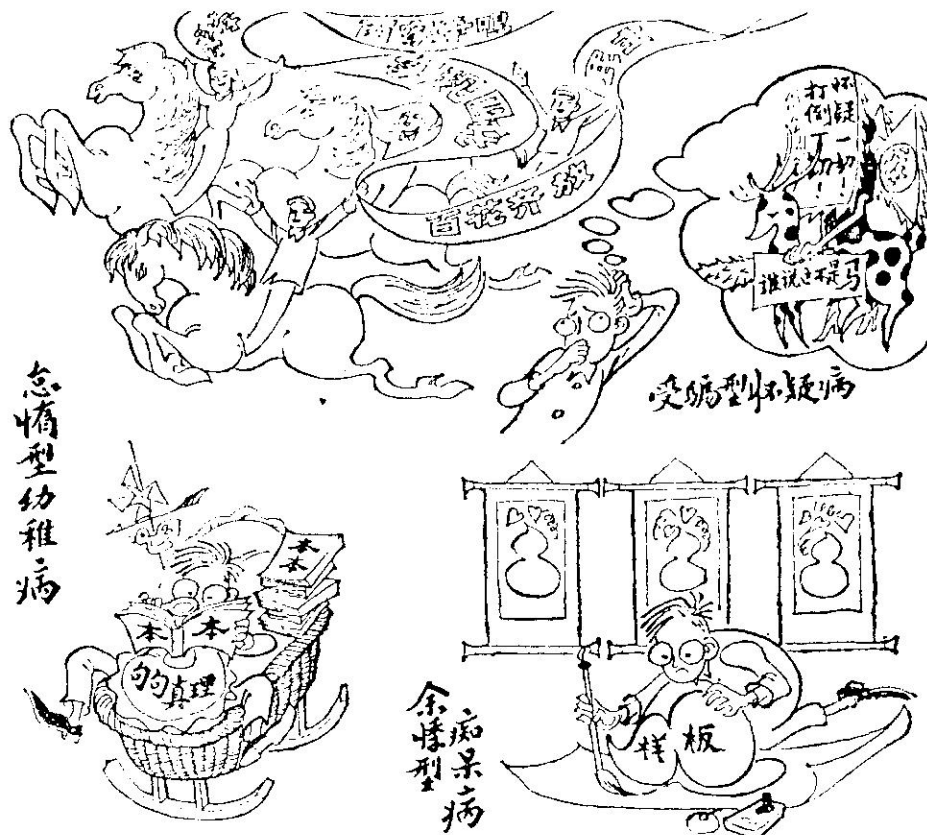 百花齐放
怀疑一切！
打倒一切！
谁说这不是马
受骗型怀疑病
怠惰型幼稚病
本本
本本
句句真理
余悸型
痴呆病
样板